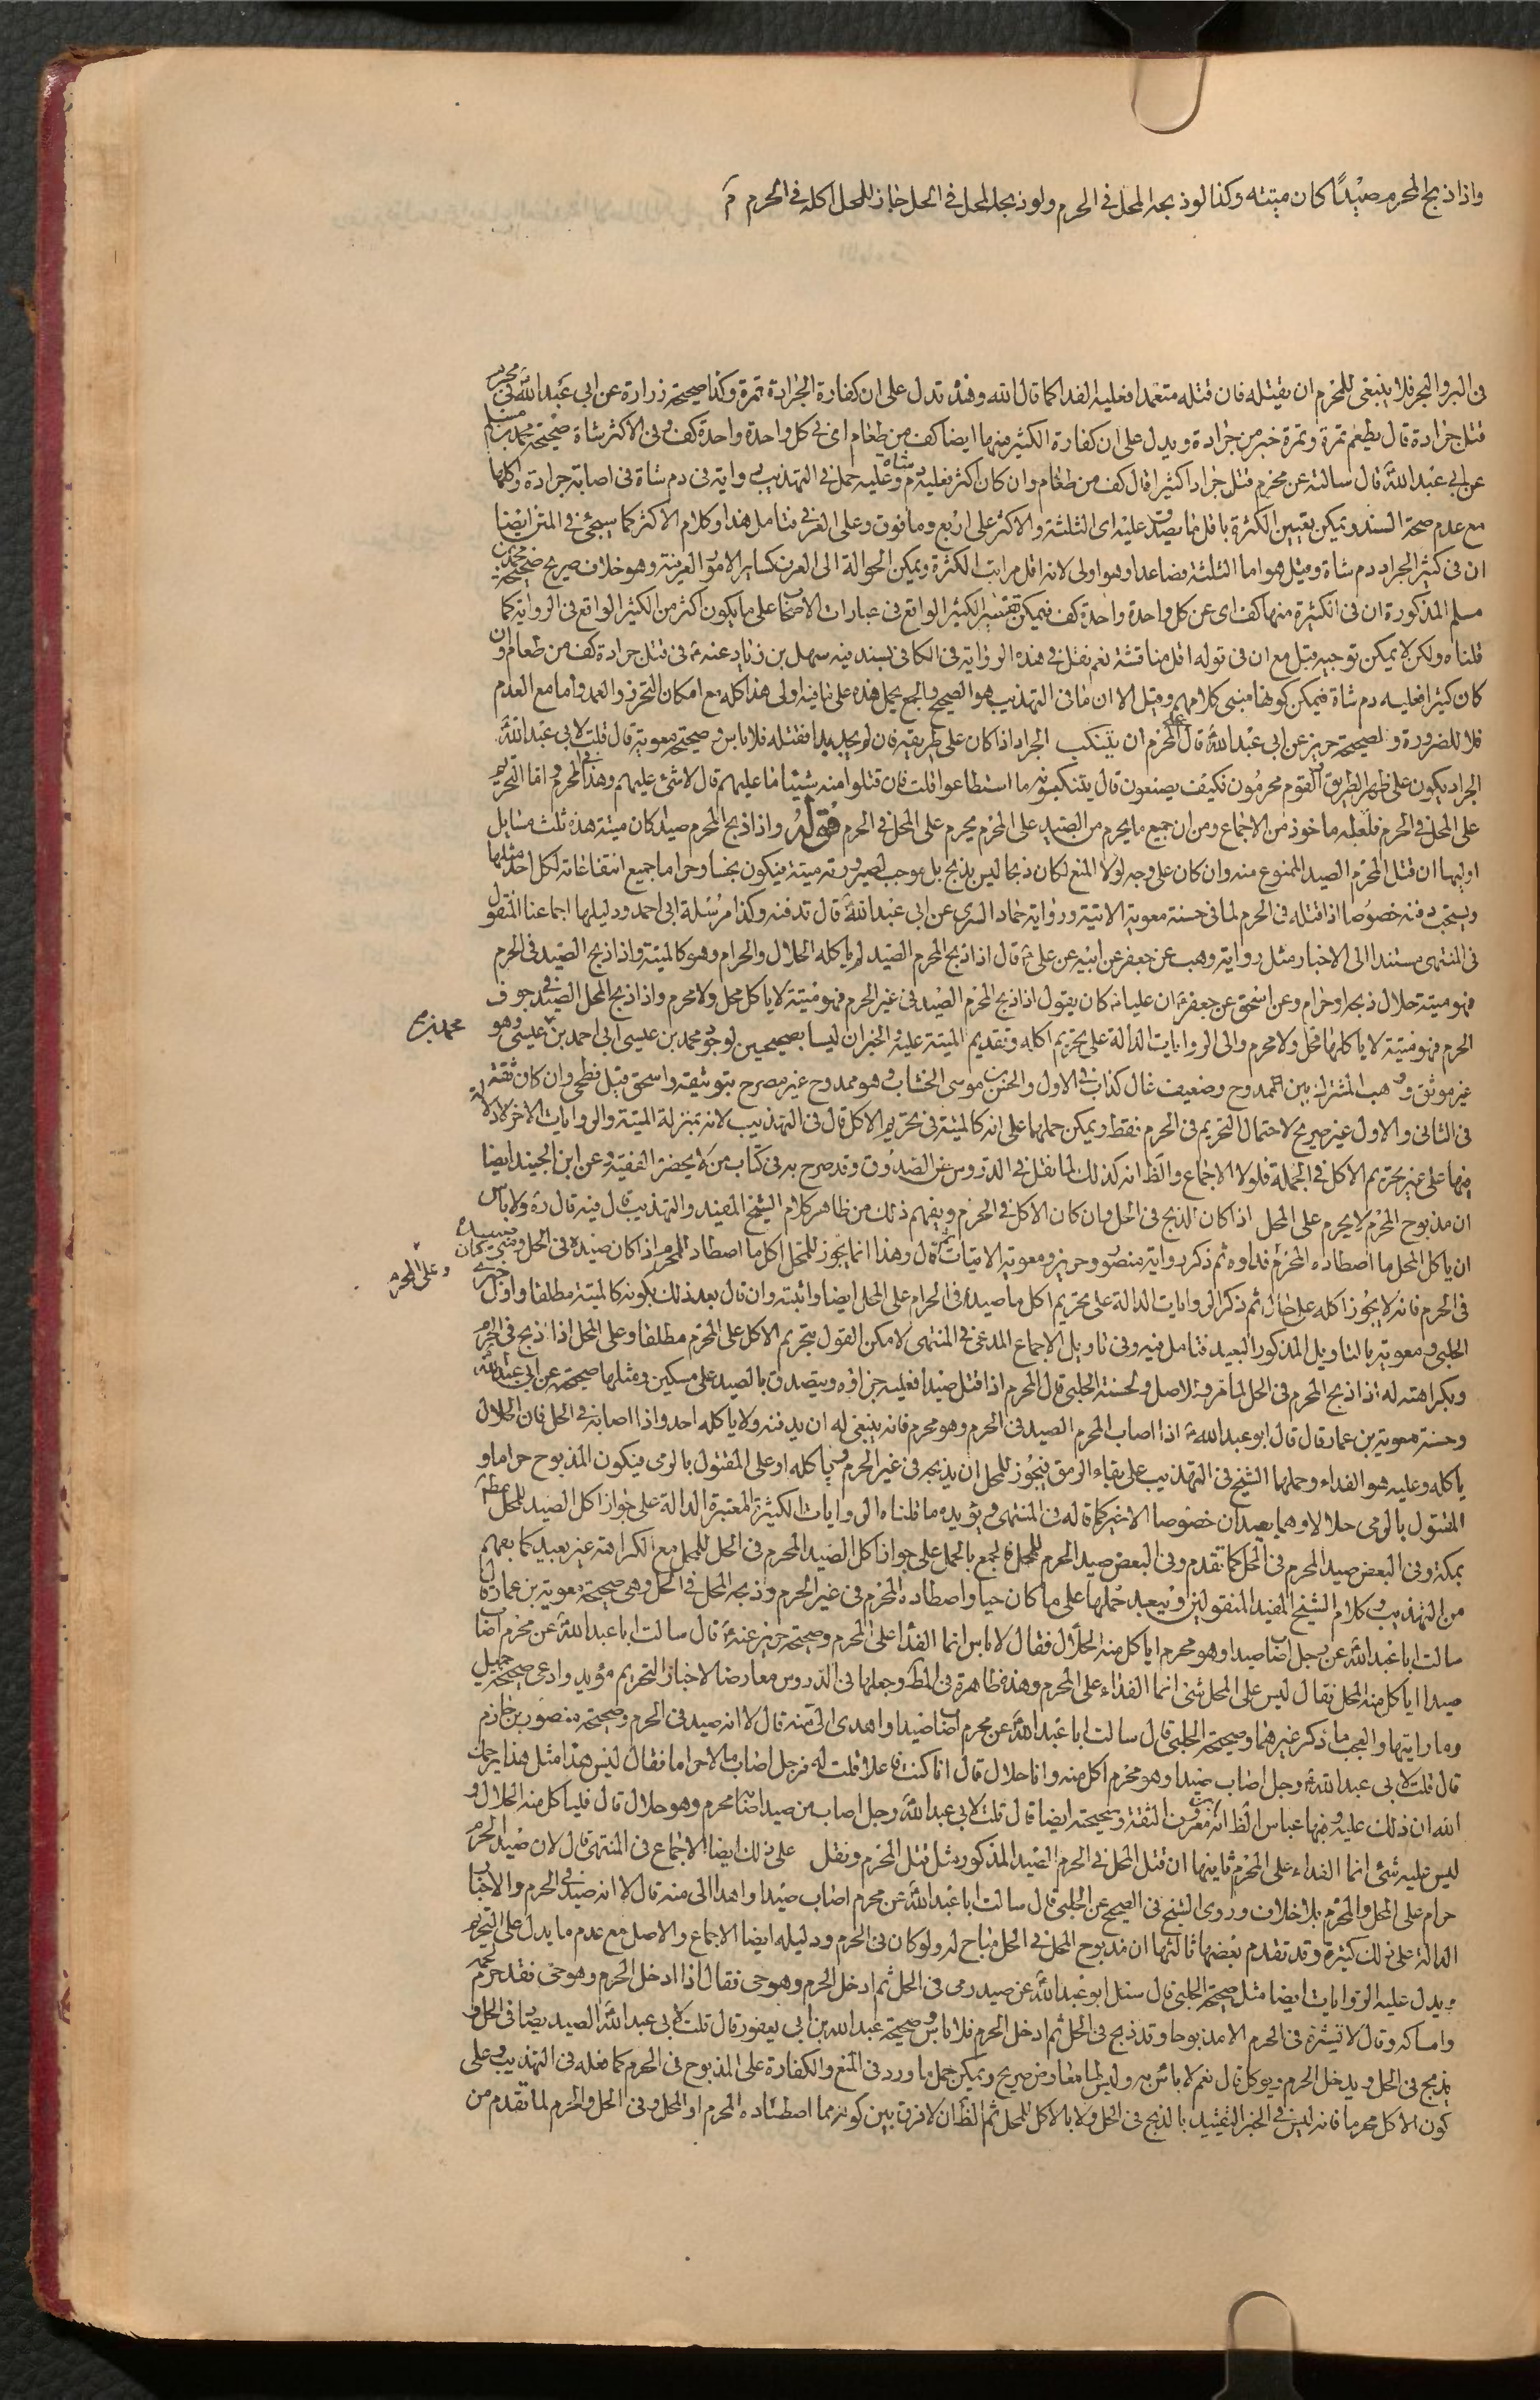 واذا ذبح المحرم صيدًا كان ميتة وكذا لو ذبحه المحل في الحرم ولو ذبحه المحل في الحل جاز للمحل اكله في الحرم م
في البر والبحر فلا ينبغي للمحرم ان يقتله فان قتله متعمدا فعليه الفدا كما قال الله وهذه تدل على ان كفارة الجرادة تمرة وكذا صحيحة زرارة عن ابي عبد الله في محرم
قتل جرادة قال يطعم تمرة وتمرة خير من جرادة ويدل على ان كفارة الكثير منها ايضا كف من طعام اي في كل واحدة واحدة كف وفي الاكثر شاة صحيحة محمد بن مسلم
عن ابي عبد الله قال سالته عن محرم قتل جرادا كثيرا قال كف من طعام وان كان اكثر فعليه دم شاة وعليه حمل في التهذيب رواية في دم شاة في اصابة جرادة واكلها
مع عدم صحة السند ويمكن تعيين الكثرة باقل ما يصدق عليه اي الثلثة والاكثر على اربع وما فوق وعلى العرف فتامل هذا وكلام الاكثر كما سيجئ في المتن ايضا
ان في كثير الجراد دم شاة وقيل هو اما الثلثة فصاعدا وهو اولى لانه اقل مراتب الكثرة ويمكن الحوالة الى العرف كساير الامور العرفية وهو خلاف صريح صحيحة محمد بن
مسلم المذكورة ان في الكثيرة منها كف اي عن كل واحدة واحدة كف فيمكن تفسير الكثير الواقع في عبارات الاصحاب على ما يكون اكثر من الكثير الواقع في الرواية كما
قلناه ولكن لا يمكن توجيه قيل مع ان في قوله اقل مناقشة نعم نقل في هذه الرواية في الكافي بسند فيه سهل بن زياد عنه ع في قتل جرادة كف من طعام وان
كان كثيرا فعليه دم شاة فيمكن كونها مبنى كلامهم وقيل الا ان ما في التهذيب هو الصحيح والجمع بحمل هذه على ما فيه اولى هذا كله مع امكان التحرز والعمد واما مع العدم
فلا للضرورة ولصحيحة حريز عن ابي عبد الله قال على المحرم ان يتنكب الجراد اذا كان على طريقه فان لم يجد بدا فقتله فلا باس وصحيحة معوية قال قلت لابي عبد الله
الجراد يكون على ظهر الطريق والقوم محرمون فكيف يصنعون قال يتنكبونه ما استطاعوا قلت فان قتلوا منه شيئا ما عليهم قال لا شئ عليهم وهذا في المحرم واما التحريم
على المحل في الحرم فلعله ماخوذ من الاجماع ومن ان جميع ما يحرم من الصيد على المحرم يحرم على المحل في الحرم قوله واذا ذبح المحرم صيدا كان ميتة هذه ثلث مسايل
اوليها ان قتل المحرم الصيد الممنوع منه وان كان على وجه لولا المنع لكان ذبحا ليس بذبح بل موجب لصيرورته ميتة فيكون نجسا وحراما جميع انتفاعاته لكل احد مثلها
ويستحب دفنه خصوصا اذا قتله في الحرم لما في حسنة معوية الاتية ورواية خلاد السري عن ابي عبد الله قال تدفنه وكذا مرسلة ابي احمد ودليلها اجماعنا المنقول
في المنتهى مستندا الى الاخبار مثل رواية وهب عن جعفر عن ابيه عن علي ع قال اذا ذبح المحرم الصيد لم ياكله الحلال والحرام وهو كالميتة واذا ذبح الصيد في الحرم
فهو ميتة حلال ذبحه او حرام وعن اسحق عن جعفر ع ان عليا ع كان يقول اذا ذبح المحرم الصيد في غير الحرم فهو ميتة لا ياكل محل ولا محرم واذا ذبح المحل الصيد في جوف
الحرم فهو ميتة لا ياكلها محل ولا محرم والى الروايات الدالة على تحريم اكله وتقديم الميتة عليه والخبران ليسا بصحيحين لوجود محمد بن عيسى ابي احمد بن عيسى وهو
غير موثق ووهب المشترك بين الممدوح وضعيف غال كذاب في الاول والحسن بن موسى الخشاب وهو ممدوح غير مصرح بتوثيقه واسحق قيل فطحي وان كان ثقة
في الثاني والاول غير صريح لاحتمال التحريم في الحرم فقط ويمكن حملها على انه كالميتة في تحريم الاكل قال في التهذيب لانه بمنزلة الميتة والروايات الاخر لا دلالة
فيها على غير تحريم الاكل في الجملة فلولا الاجماع والظ انه كذلك لما نقل في الدروس عن الصدوق وقد صرح به في كتاب من لا يحضره الفقيه وعن ابن الجنيد ايضا
ان مذبوح المحرم لا يحرم على المحل اذا كان الذبح في الحل وان كان الاكل في الحرم ويفهم ذلك من ظاهر كلام الشيخ المفيد والتهذيب قال فيه قال ره ولا باس
ان ياكل المحل ما اصطاده المحرم فداه وه ثم ذكر رواية منصور وحريز ومعوية الاتيات ثم قال وهذا انما يجوز للمحل اكل ما اصطاد المحرم اذا كان صيده في الحل ومتى كان صيده
في الحرم فانه لا يجوز اكله على حال ثم ذكر الروايات الدالة على تحريم اكل ما صيد في الحرام على المحل ايضا واثبته وان قال بعد ذلك بكونه كالميتة مطلقا واول خبري
الحلبي ومعوية بالتاويل المذكور البعيد فتامل فيه وفي تاويل الاجماع المدعى في المنتهى لا مكن القول بتحريم الاكل على المحرم مطلقا وعلى المحل اذا ذبح في الحرم
وبكراهته له اذا ذبح المحرم في الحل لما مر والاصل ولحسنة الحلبي قال المحرم اذا قتل صيدا فعليه جزاؤه ويتصدق بالصيد على مسكين ومثلها صحيحته عن ابي عبد الله
وحسنة معوية بن عمار قال قال ابو عبد الله ع اذا اصاب المحرم الصيد في الحرم وهو محرم فانه ينبغي له ان يدفنه ولا ياكله احد واذا اصابه في الحل فان الحلال
ياكله وعليه هو الفداء وحملها الشيخ في التهذيب على بقاء الرمق فيجوز للمحل ان يذبحه في غير الحرم وياكله او على المقتول بالرمي فيكون المذبوح حراما و
المقتول بالرمي حلالا وهما بعيدان خصوصا الاخير كما قاله في المنتهى ويؤيده ما قلناه الروايات الكثيرة المعتبرة الدالة على جواز اكل الصيد للمحل مطلقا
بمكة وفي البعض صيد المحرم في الحل كما تقدم وفي البعض صيد المحرم للمحل فالجمع بالحمل على جواز اكل الصيد المحرم في الحل للمحل مع الكراهة غير بعيد كما يفهم
من التهذيب وكلام الشيخ المفيد المنقولين ويبعد حملها على ما كان حيا واصطاده المحرم في غير الحرم وذبحه المحل في الحل وهي صحيحة معوية بن عمار قال
سالت ابا عبد الله عن رجل اصاب صيدا وهو محرم اياكل منه الحلال فقال لا باس انما الفدا على المحرم وصحيحة حريز عنه ع قال سالت ابا عبد الله عن محرم اصاب
صيدا اياكل منه المحل فقال ليس على المحل شئ انما الفداء على المحرم وهذه ظاهرة في المط وجعلها في الدروس معارضا لاخبار التحريم مؤيد وادعى صحيحة جميل
وما رايتها والعجب ما ذكر غيرهما وصحيحة الحلبي قال سالت ابا عبد الله عن محرم اصاب صيدا واهدى الي منه قال لا انه صيد في الحرم وصحيحة منصور بن حازم
قال قلت لابي عبد الله ع رجل اصاب صيدا وهو محرم اكل منه وانا حلال قال انا كنت فاعلا قلت له فرجل اصاب مالا حراما فقال ليس هذا مثل هذا يرحمك
الله ان ذلك عليه وفيها عباس الظ انه ابن معروف الثقة وصحيحته ايضا قال قلت لابي عبد الله رجل اصاب من صيد اصابه محرم وهو حلال قال فلياكل منه الحلال و
ليس عليه شئ انما الفداء على المحرم ثانيها ان قتل المحل في الحرم الصيد المذكور مثل قتل المحرم ونقل على ذلك ايضا الاجماع في المنتهى قال لان صيد الحرم
حرام على المحل والمحرم بلا خلاف وروى الشيخ في الصحيح عن الحلبي قال سالت ابا عبد الله عن محرم اصاب صيدا واهدا الى منه قال لا انه صيد في الحرم والاخبار
الدالة على ذلك كثيرة وقد تقدم بعضها ثالثها ان مذبوح المحل في الحل مباح له ولو كان في الحرم ودليله ايضا الاجماع والاصل مع عدم ما يدل على التحريم
ويدل عليه الروايات ايضا مثل صحيحة الحلبي قال سئل ابو عبد الله عن صيد رمي في الحل ثم ادخل الحرم وهو حي فقال اذا ادخل الحرم وهو حي فقد حرم لحمه
وامساكه وقال لا تشتره في الحرم الا مذبوحا وقد ذبح في الحل ثم ادخل الحرم فلا باس وصحيحة عبد الله بن ابي يعفور قال قلت لابي عبد الله الصيد يصاد في الحل و
يذبح في الحل ويدخل الحرم ويوكل قال نعم لا باس به وليس لها معارض صريح ويمكن حمل ما ورد في المنع والكفارة على المذبوح في الحرم كما فعله في التهذيب وعلى
كون الاكل محرما فانه ليس في الخبر التقييد بالذبح في الحل ولا بالاكل للمحل ثم الظ ان لا فرق بين كونه مما اصطاده المحرم او المحل وفي الحل والحرم لما تقدم من
وعلى المحرم